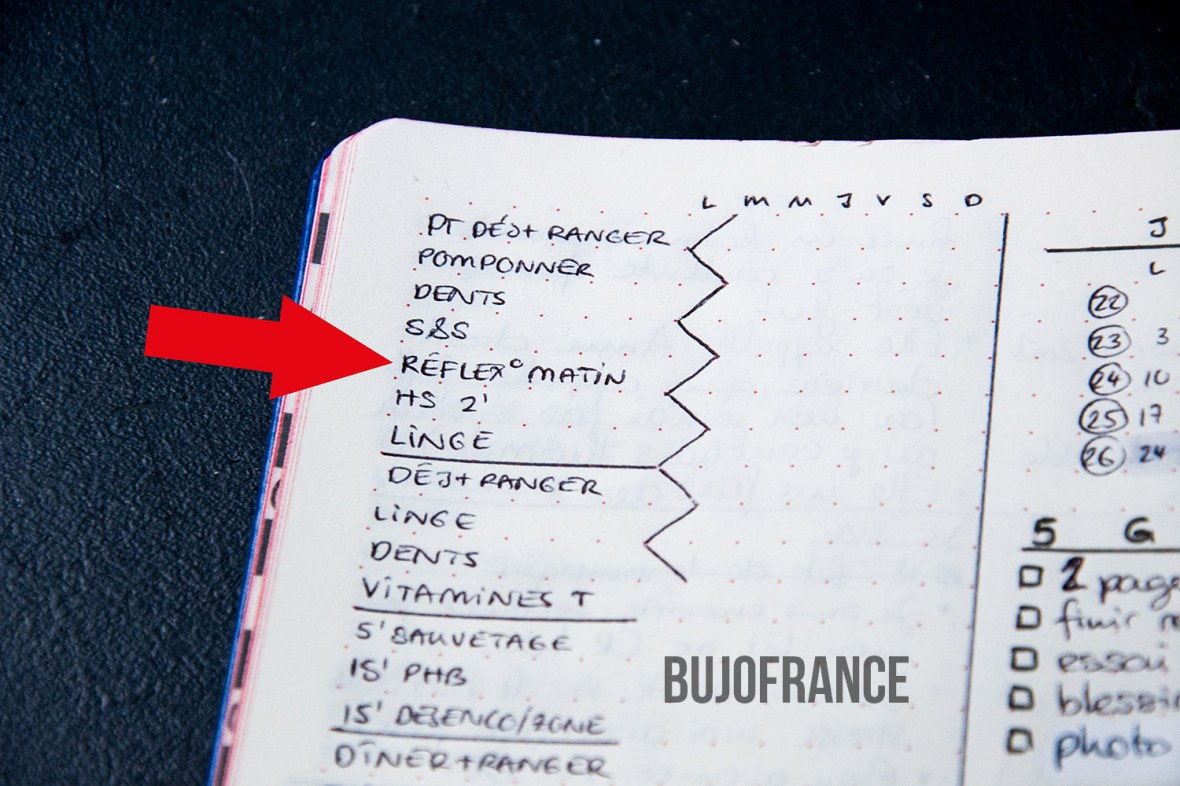 L M M J V S D
PT DÉJ+RANGER
POMPONNER
DENTS
S&S
RÉFLEX° MATIN
HS 2'
LINGE
DÉJ+RANGER
LINGE
DENTS
VITAMINES T
5' SAUVETAGE
15' PHB
15' DESENCO/ZONE
DÎNER+RANGER
J
L
22
23 3
24 10
25 17
26 24
5 G
2 page
finir re
essai
blessi
photo
BUJOFRANCE